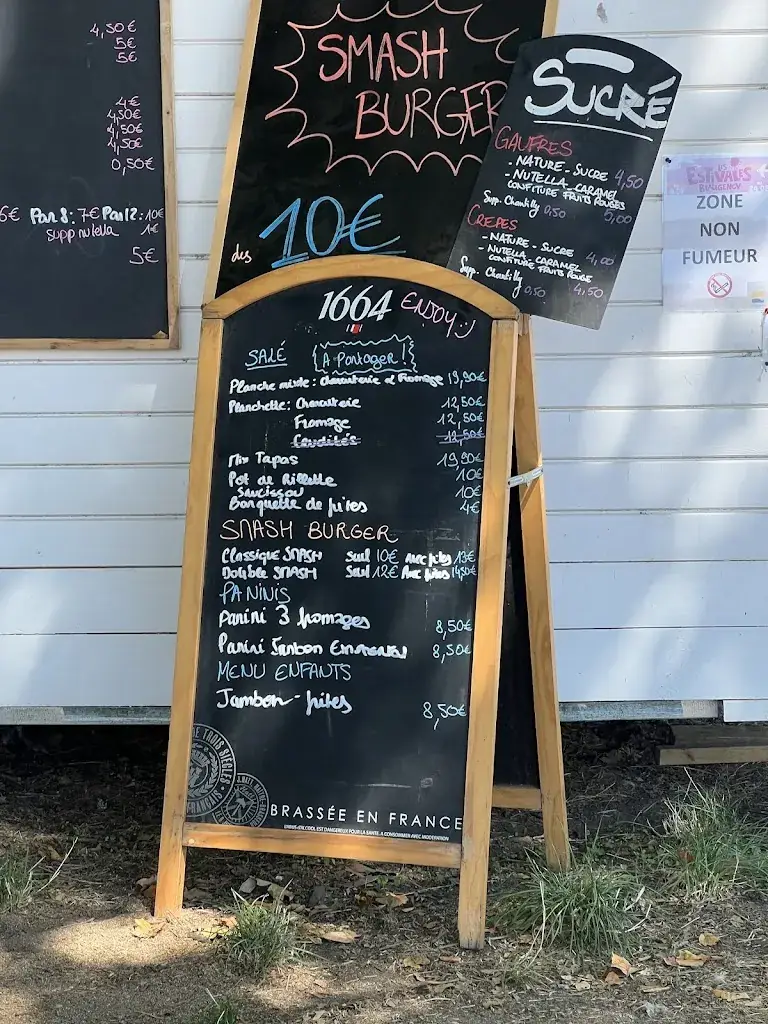 4,50€
5€
5€
4€
4,50€
4,50€
4,50€
0,50€
6€ Par 8: 7€ Par 12: 10€
supp nutella 1€
5€
SMASH
BURGER
dès 10€
SUCRÉ
GAUFRES
- NATURE - SUCRE 4,50
- NUTELLA - CARAMEL
CONFITURE FRUITS ROUGES 5,00
Supp. Chantilly 0,50
CREPES
- NATURE - SUCRE 4,00
- NUTELLA, CARAMEL
CONFITURE FRUITS ROUGE 4,50
Supp. Chantilly 0,50
LES
ESTIVALES
ZONE
NON
FUMEUR
1664 ENJOY :)
SALÉ A Partager !
Planche mixte: Charcuterie et Fromage 19,90€
Planchette: Charcuterie 12,50€
Fromage 12,50€
Crudités 12,50€
Mix Tapas 19,90€
Pot de Rillette 10€
Saucisson 10€
Barquette de frites 4€
SMASH BURGER
Classique SMASH Seul 10€ Avec frites 13€
Double SMASH Seul 12€ Avec frites 14,50€
PANINIS
Panini 3 fromages 8,50€
Panini Jambon Emmental 8,50€
MENU ENFANTS
Jambon - frites 8,50€
TROIS SIÈCLES
BRASSÉE EN FRANCE
L'ABUS D'ALCOOL EST DANGEREUX POUR LA SANTÉ. A CONSOMMER AVEC MODÉRATION